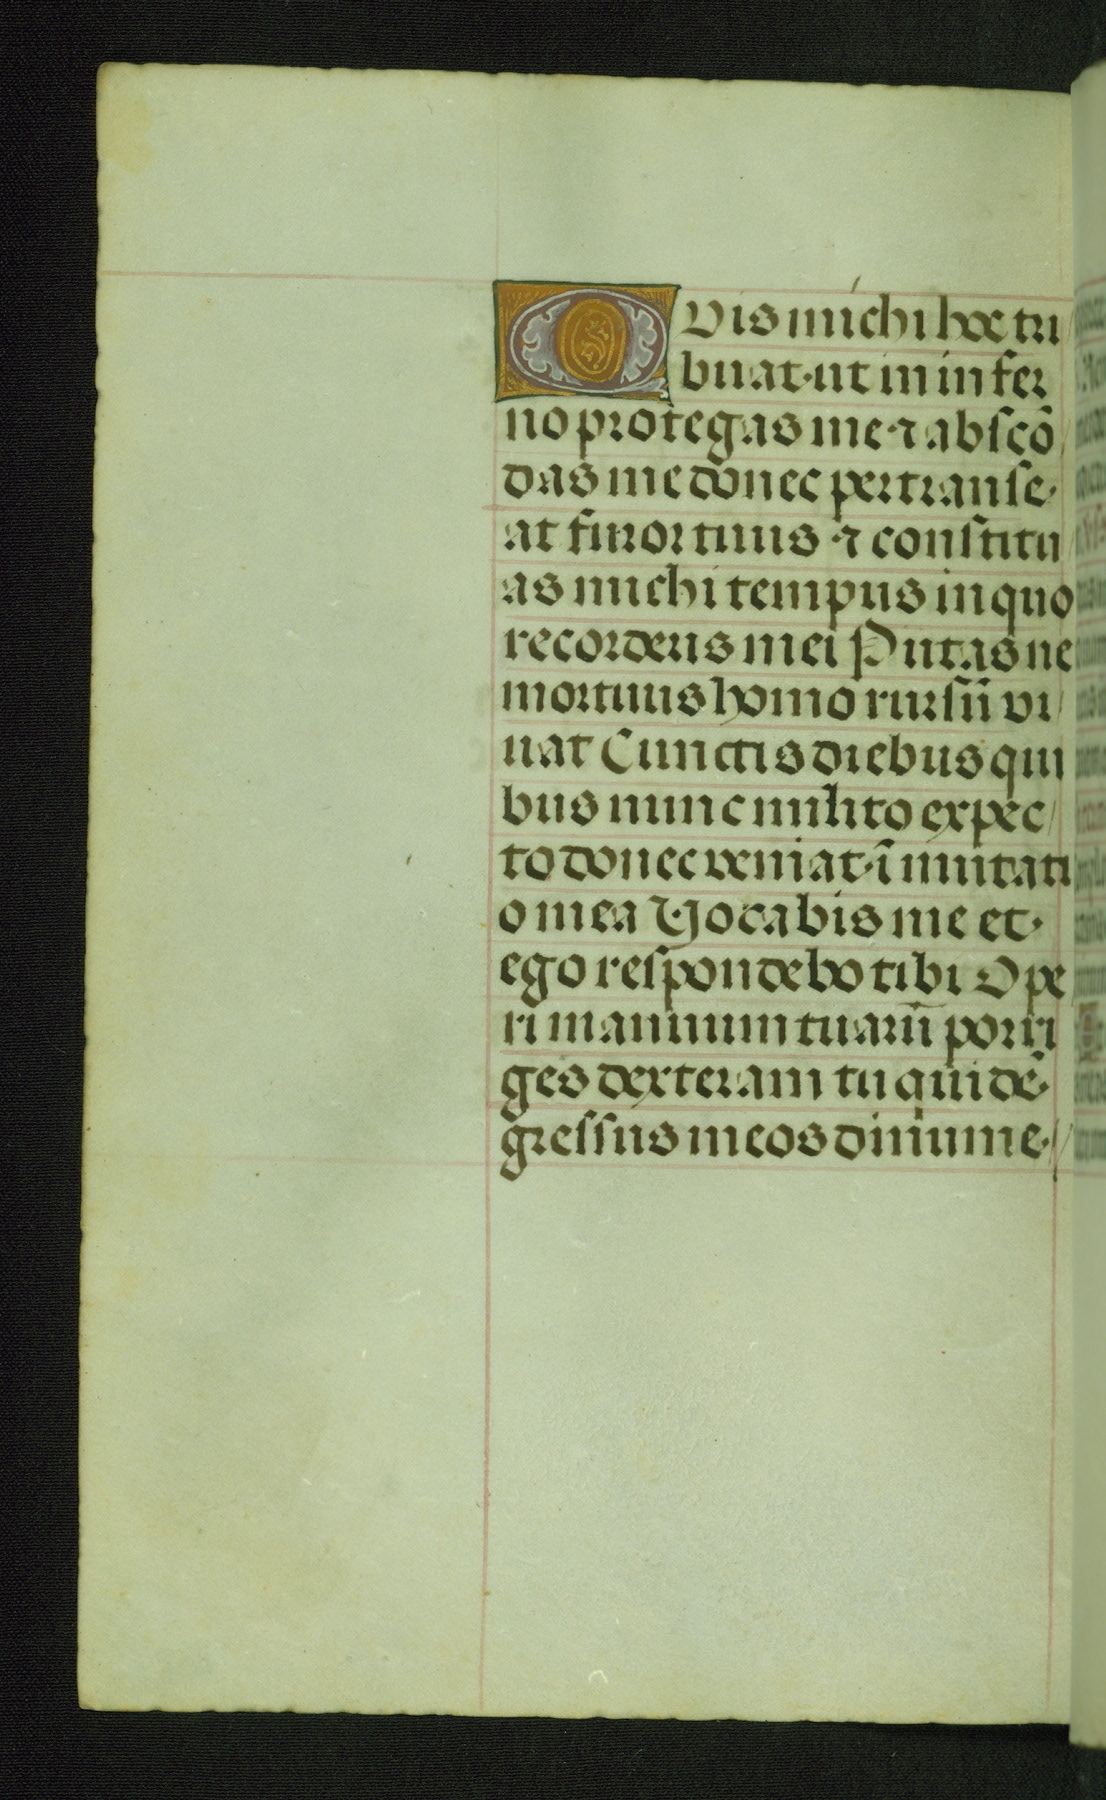 Quis michi hoc tri
buat·ut in infer
no protegas me·⁊ abscō
das me donec pertranse·
at furor tuus ·⁊ constitu
as michi tempus in quo
recorderis mei Putas ne
mortuus homo rursū vi
uat Cunctis diebus qui
bus nunc milito expec
to donec veniat·īmutati
o mea Vocabis me et·
ego respondebo tibi Ope
ri manuum tuarū porri
ges dexteram tu quidē·
gressus meos dinume·